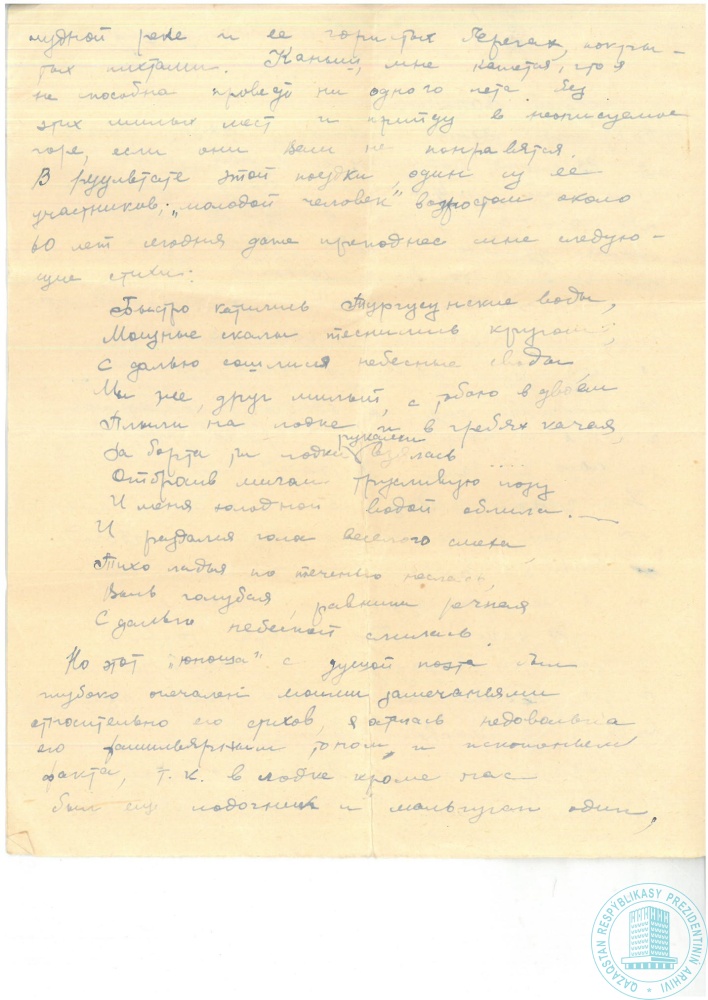 чудной реке и ее гористых берегах, покры-
тых пихтами. Каныш, мне кажется, что я
не способна проведу ни одного лета без
этих милых мест и приду в неописуемое
горе, если они Вам не понравятся.
В результате этой поездки, один из ее
участников, "молодой человек" возрастом около
60 лет сегодня даже преподнес мне следую-
щие стихи:
Быстро катились Тургусунские воды,
Мощные скалы теснились кругом;
С далью сошлися небесные своды
Мы же, друг милый, с тобою вдвоем
Плыли на лодке, и в гребях качая,
За борта ты лодки руками взялась
Отбросив мигом трусливую позу
И меня холодной водой облила.
И раздался голос веселого смеха
Тихо ладья по теченью неслась,
Вель голубая, равнина речная
С далью небесной слилась.
Но этот "юноша" с душой поэта был
глубоко опечален моими замечаньями
относительно его стихов, я осталась недовольна
его фамильярным тоном, и искаженьем
факта, т.к. в лодке кроме нас
был еще лодочник и мальчуган один,
QAZAQSTAN RESPÝBLIKASY PREZIDENTINIŃ ARHIVI